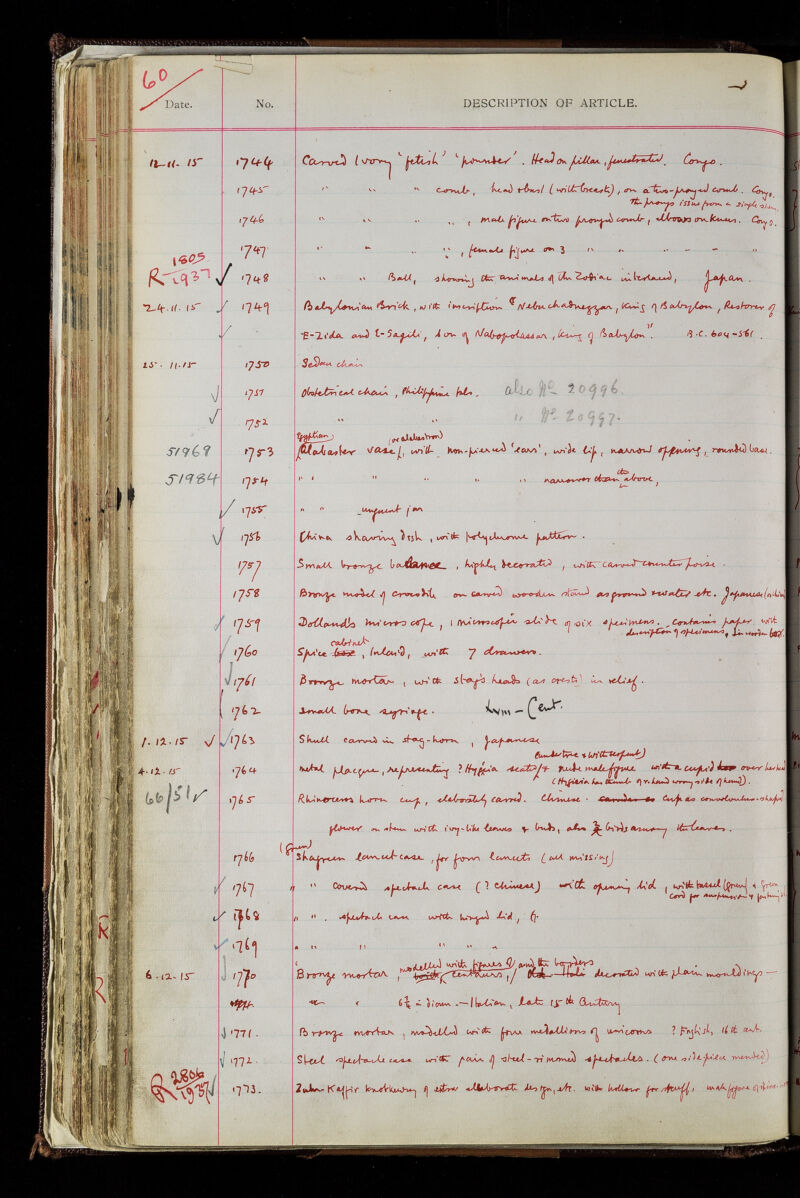 60
Date. No. DESCRIPTION OF ARTICLE.
12-11-15 1744 Carved Ivory 'fetish' 'pounder'. Head on pillar, fenestrated. Congo.
1745 " " " comb, head & bust (with breasts), on a two-pronged comb. Congo.
The prongs issue from a single stem
1746 " " " " , male figure on two pronged comb, elbows on knees. Congo.
1747 " " " " , female figure on 3 " " " " "
1805
R 1937 1748 " " Ball, showing the animals of the Zodiac interlaced, Japan.
24.11.15 1749 Babylonian Brick, with inscription "Nebuchadnezzar, King of Babylon, Restorer of
E-Zida and E-Sagili, son of Nabopolassar, King of Babylon". B.C. 604-561.
25.11.15 1750 Sedan chair
1751 Obstetrical chair, Philippine Isls. also No 20996.
1752 " " " No 20997.
Egyptian (or alabastron)
51969 1753 Alabaster vase, with non-pierced 'ears', wide lip, narrow opening, rounded base.
51984 1754 " " " " " narrower than the above,
1755 " " unguent jar
1756 China shaving dish, with polychrome pattern.
1757 Small bronze balance, highly decorated, with carved counterpoise.
1758 Bronze model of crocodile on carved wooden stand as ground & water etc. Japanese
1759 Dollond's microscope, 1 microscopic slide of six specimens. Contains paper with
description of specimens, in wooden box.
1760 Spice cabinet, Inlaid, with 7 drawers.
1761 Bronze mortar, with stag's heads (as crests) in relief.
1762 Small bone syringe.
1.12.15 1763 Skull carved in stag-horn, Japanese
(under tree & with serpent)
4.12.15 1764 metal placque, representing ? Hygieia seated & nude male figure with a cupid over her head
(Hygieia has thumb of r. hand wrong side of hand).
66/51 1765 Rhinoceros horn cup, elaborately carved. Chinese. Cup as convolvulus-shaped
flower on stem with ivy-like leaves & buds, also 2 birds among the leaves.
(green)
1766 Shagreen lancet case, for four lancets (all missing)
1767 " " covered spectacle case (? Chinese) with opening lid, with tassel (green) & green
cord for suspension & fastening
1768 " " . spectacle case with hinged lid,
1769 " " " " "
6-12-15 1770 Bronze mortar, modelled with figures of centaurs, and the borders decorated with plain mouldings —
6½ in diam. — Italian, late 15th Century
1771. Bronze mortar, modelled with four medallions of unicorns ? English, 16th cent.
1772. Steel spectacle case with pair of steel-rimmed spectacles. (one side piece mended)
2806
R 1937 1773. Zulu-Kaffir knobkerry of extra elaborate design, etc. with hollow for snuff, male figure